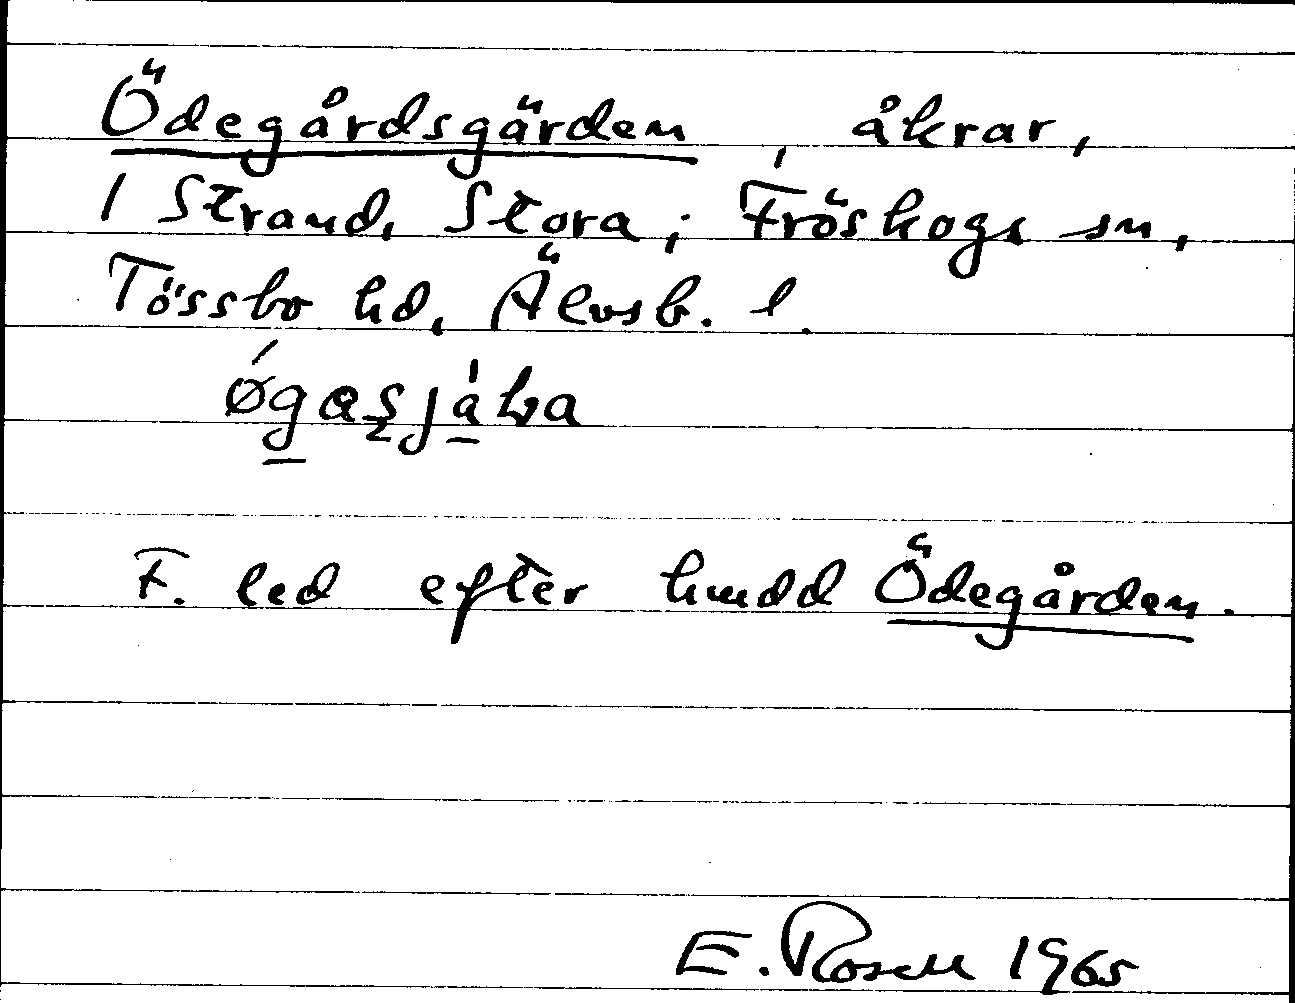 Ödegårdsgärden, åkrar,
1 Strand, Stora, Fröskogs sn,
Tössbo hd, Älvsb. l.
F. led efter hmdd Ödegården.
E. Rosell 1965